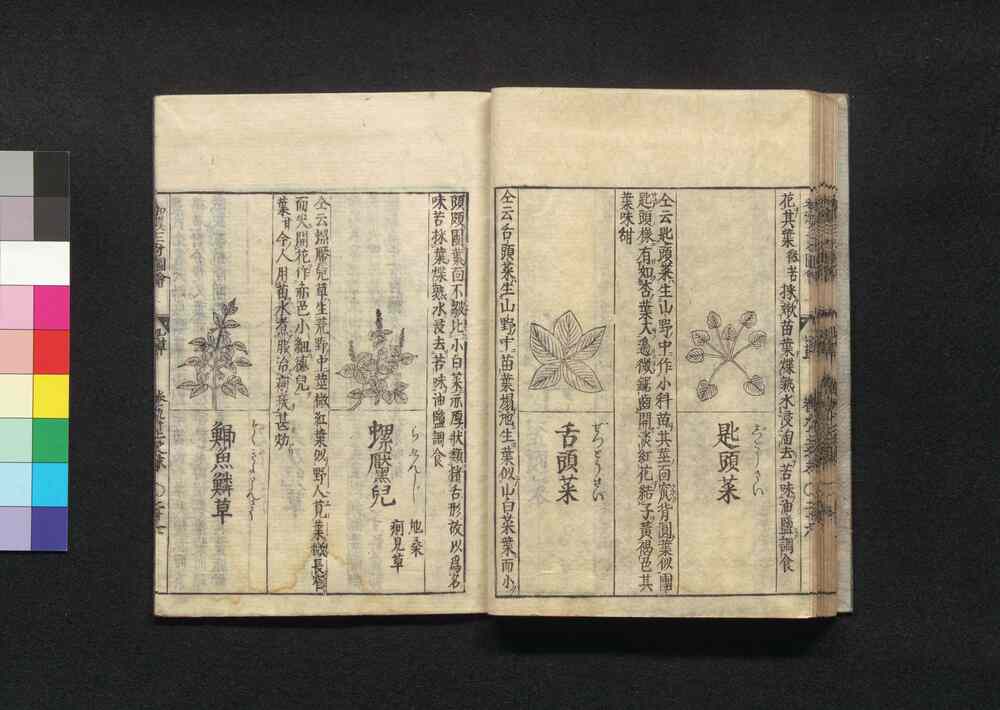 花其葉味苦採嫩苗葉煠熟水浸淘去苦味油鹽調食
匙頭菜
仝云匙頭菜生山野中作小科苗其莖面窊背圓葉似團
匙頭樣有如杏葉大邊微鋸齒開淡紅花結子黃褐色其
葉味甜
舌頭菜
ぜつとうさい
仝云舌頭菜生山野中苗葉搨地生葉似山白菜葉而小
頭頗團葉面不皺比小白菜亦厚狀類猪舌形故以爲名
味苦採葉煠熟水浸去苦味油鹽調食
螺厴兒
地桑
痢見草
仝云螺厴兒草生荒野中莖微紅葉似野人莧葉微長窄
而尖開花作赤色小細穗兒
葉甘今人用苗水煮服治痢疾甚効
鯽魚鱗草